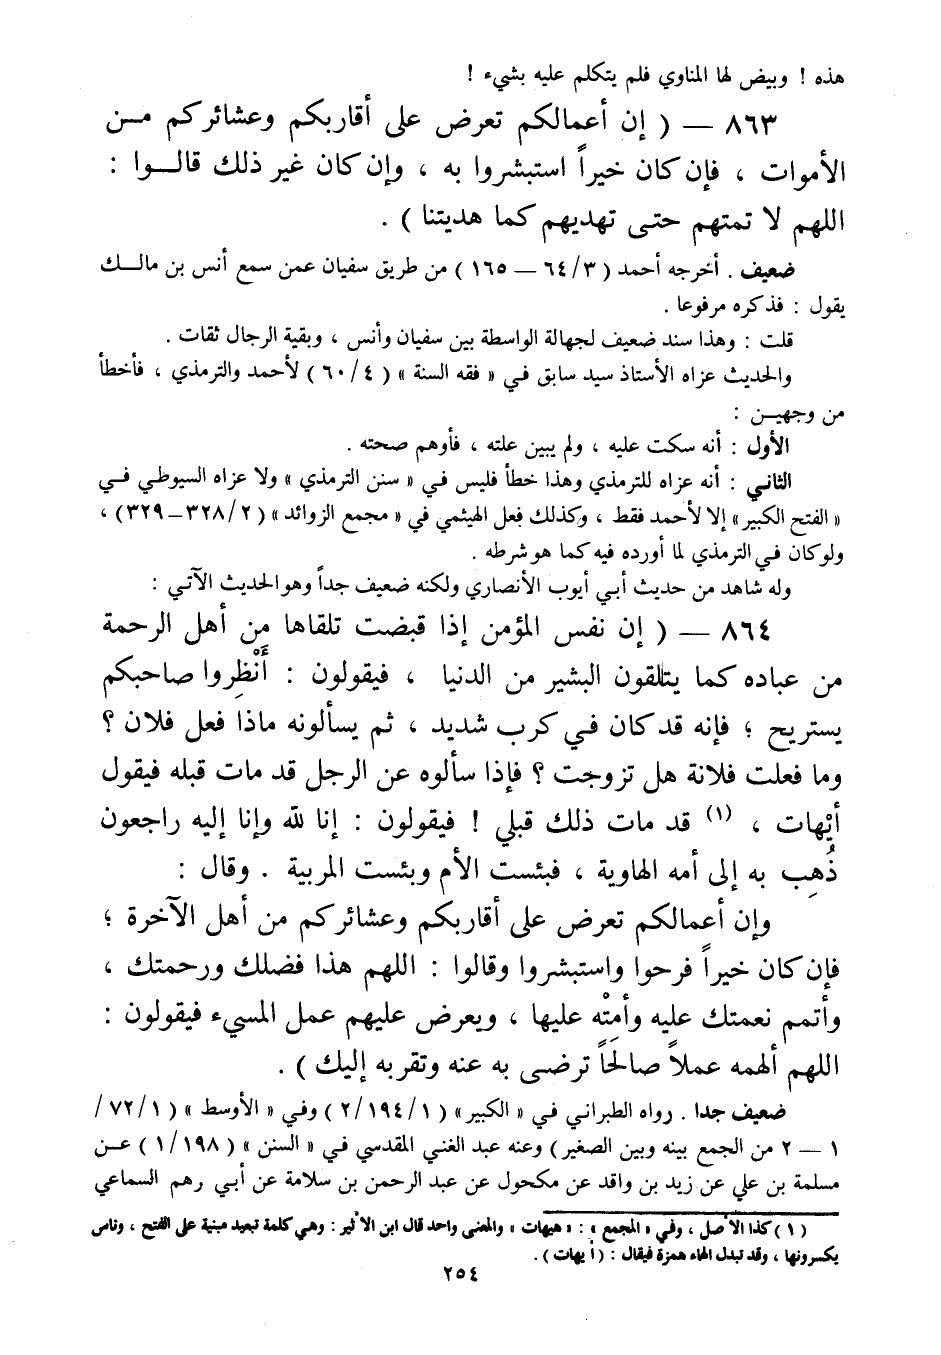 هذه ! وبيض لها المناوي فلم يتكلم عليه بشيء !
٨٦٣ — ( إن أعمالكم تعرض على أقاربكم وعشائركم مـن
الأموات ، فإن كان خيراً استبشروا به ، وإن كان غير ذلك قالـوا :
اللهم لا تمتهم حتى تهديهم كما هديتنا ) .
ضعيف . أخرجه أحمد ( ٣/ ٦٤ — ١٦٥ ) من طريق سفيان عمن سمع أنس بن مالـك
يقول : فذكره مرفوعا .
قلت : وهذا سند ضعيف لجهالة الواسطة بين سفيان وأنس ، وبقية الرجال ثقات .
والحديث عزاه الأستاذ سيد سابق في « فقه السنة » ( ٤/ ٦٠ ) لأحمد والترمذي ، فأخطأ
من وجهيـن :
الأول : أنه سكت عليه ، ولم يبين علته ، فأوهم صحته .
الثاني : أنه عزاه للترمذي وهذا خطأ فليس في « سنن الترمذي » ولا عزاه السيوطي في
« الفتح الكبير» إلا لأحمد فقط ، وكذلك فعل الهيثمي في « مجمع الزوائد » ( ٢/ ٣٢٨ — ٣٢٩ ) ،
ولو كان في الترمذي لما أورده فيه كما هو شرطه .
وله شاهد من حديث أبي أيوب الأنصاري ولكنه ضعيف جداً وهو الحديث الآتي :
٨٦٤ — ( إن نفس المؤمن إذا قبضت تلقاها من أهل الرحمة
من عباده كما يتلقون البشير من الدنيا ، فيقولون : أَنْظِروا صاحبكم
يستريح ؛ فإنه قد كان في كرب شديد ، ثم يسألونه ماذا فعل فلان ؟
وما فعلت فلانة هل تزوجت ؟ فإذا سألوه عن الرجل قد مات قبله فيقول
أَيْهات ، (١) قد مات ذلك قبلي ! فيقولون : إنا لله وإنا إليه راجعون
ذُهِب به إلى أمه الهاوية ، فبئست الأم وبئست المربية . وقال :
وإن أعمالكم تعرض على أقاربكم وعشائركم من أهل الآخرة ؛
فإن كان خيراً فرحوا واستبشروا وقالوا : اللهم هذا فضلك ورحمتك ،
وأتمم نعمتك عليه وأَمِتْه عليها ، ويعرض عليهم عمل المسيء فيقولون :
اللهم ألهمه عملاً صالحاً ترضى به عنه وتقربه إليك ) .
ضعيف جدا . رواه الطبراني في « الكبير » ( ١/ ١٩٤/ ٢ ) وفي « الأوسط » ( ١/ ٧٢/
١ — ٢ من الجمع بينه وبين الصغير ) وعنه عبد الغني المقدسي في « السنن » ( ١٩٨/ ١ ) عـن
مسلمة بن علي عن زيد بن واقد عن مكحول عن عبد الرحمن بن سلامة عن أبي رهم السماعي
( ١ ) كذا الأصل ، وفي « المجمع » : « هيهات » والمعنى واحد قال ابن الأثير : وهي كلمة تبعيد مبنية على الفتح ، وناس
يكسرونها ، وقد تبدل الهاء همزة فيقال : ( أيهات ) .
٢٥٤